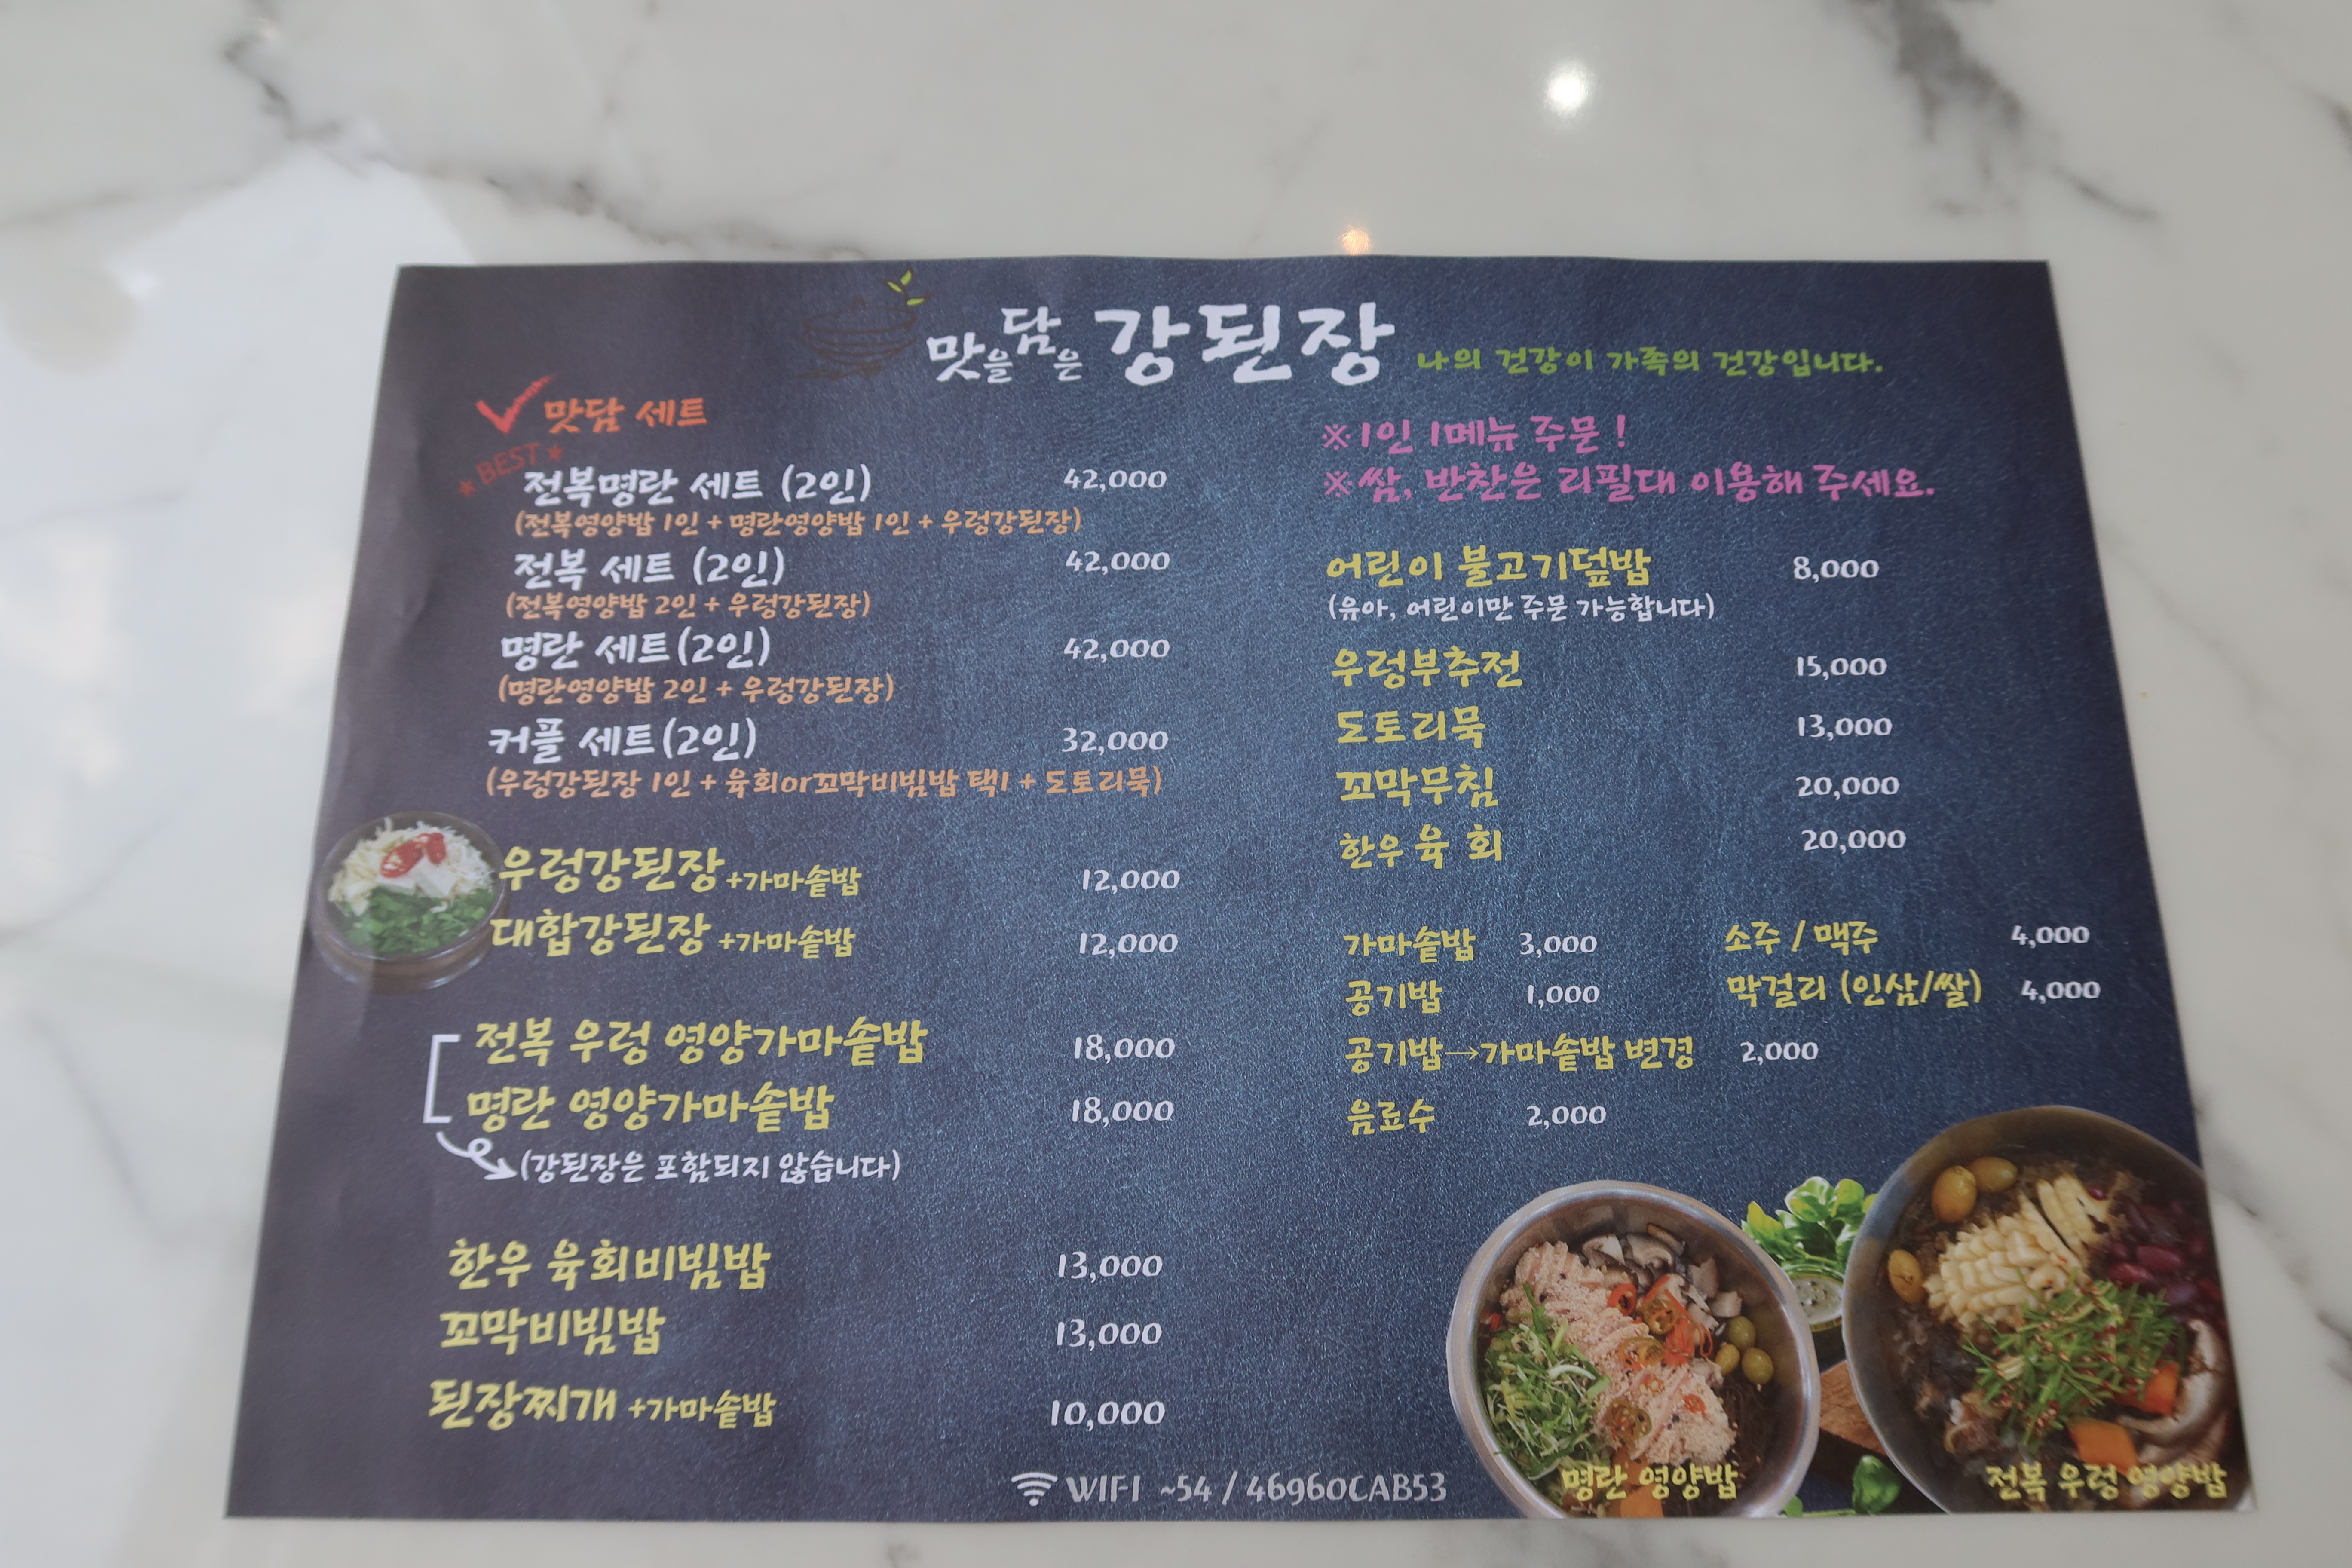 맛을담은 강된장 나의 건강이 가족의 건강입니다.
맛담 세트
★BEST★
전복명란 세트 (2인) 42,000
(전복영양밥 1인 + 명란영양밥 1인 + 우렁강된장)
전복 세트 (2인) 42,000
(전복영양밥 2인 + 우렁강된장)
명란 세트(2인) 42,000
(명란영양밥 2인 + 우렁강된장)
커플 세트(2인) 32,000
(우렁강된장 1인 + 육회or꼬막비빔밥 택1 + 도토리묵)
우렁강된장+가마솥밥 12,000
대합강된장 +가마솥밥 12,000
전복 우렁 영양가마솥밥 18,000
명란 영양가마솥밥 18,000
(강된장은 포함되지 않습니다)
한우 육회비빔밥 13,000
꼬막비빔밥 13,000
된장찌개 +가마솥밥 10,000
※1인 1메뉴 주문 !
※쌈, 반찬은 리필대 이용해 주세요.
어린이 불고기덮밥 8,000
(유아, 어린이만 주문 가능합니다)
우렁부추전 15,000
도토리묵 13,000
꼬막무침 20,000
한우 육 회 20,000
가마솥밥 3,000 소주 / 맥주 4,000
공기밥 1,000 막걸리 (인삼/쌀) 4,000
공기밥→가마솥밥 변경 2,000
음료수 2,000
명란 영양밥 전복 우렁 영양밥
WIFI ~54 / 46960CAB53